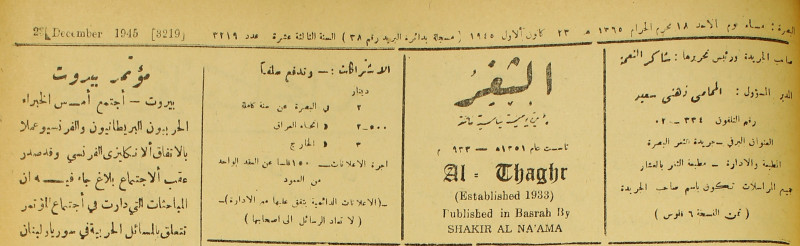 البصرة: مساء يوم الاحد ١٨ محرم الحرام ١٣٦٥ هـ ٢٣ كانون الاول ١٩٤٥ (مسجلة بدائرة البريد رقم ٣٨) السنة الثالثة عشرة عدد ٣٢١٩
December 1945 [3219]
صاحب الجريدة ورئيس تحريرها: شاكر النعمة
المدير المسؤول: المحامي زهني سعيد
رقم التلفون ٣٣٤ - ٠٢
العنوان البرقي - جريدة الثغر البصرة
المطبعة والادارة - مطبعة الثغر بالعشار
جميع المراسلات تكون باسم صاحب الجريدة
( ثمن النسخة ٦ فلوس )
الثغر
جريدة يومية سياسية
تأسست عام ١٣٥١ هـ - ٩٣٣ م
Al - Thaghr
(Established 1933)
Published in Basrah By
SHAKIR AL NA'AMA
الاشتراكات: - وتدفع سلفاً
دينار
٢ في البصرة عن سنة كاملة
٢-٥٠٠ » انحاء العراق
٣ » الخارج
اجرة الاعلانات - ١٥٠ فلساً عن العقد الواحد
من العمود
-(الاعلانات الدائمية يتفق عليها مع الادارة)-
( لا تعاد الرسائل الى اصحابها )
مؤتمر بيروت
بيروت - اجتمع أمس الخبراء
الحربيون البريطانيون والفرنسيو عملا
بالاتفاق الانكليزي الفرنسي وقد صدر
عقب الاجتماع بلاغ جاء فيه ان
المباحثات التي دارت في اجتماع المؤتمر
تتعلق بالمسائل الحربية في سوريا ولبنان